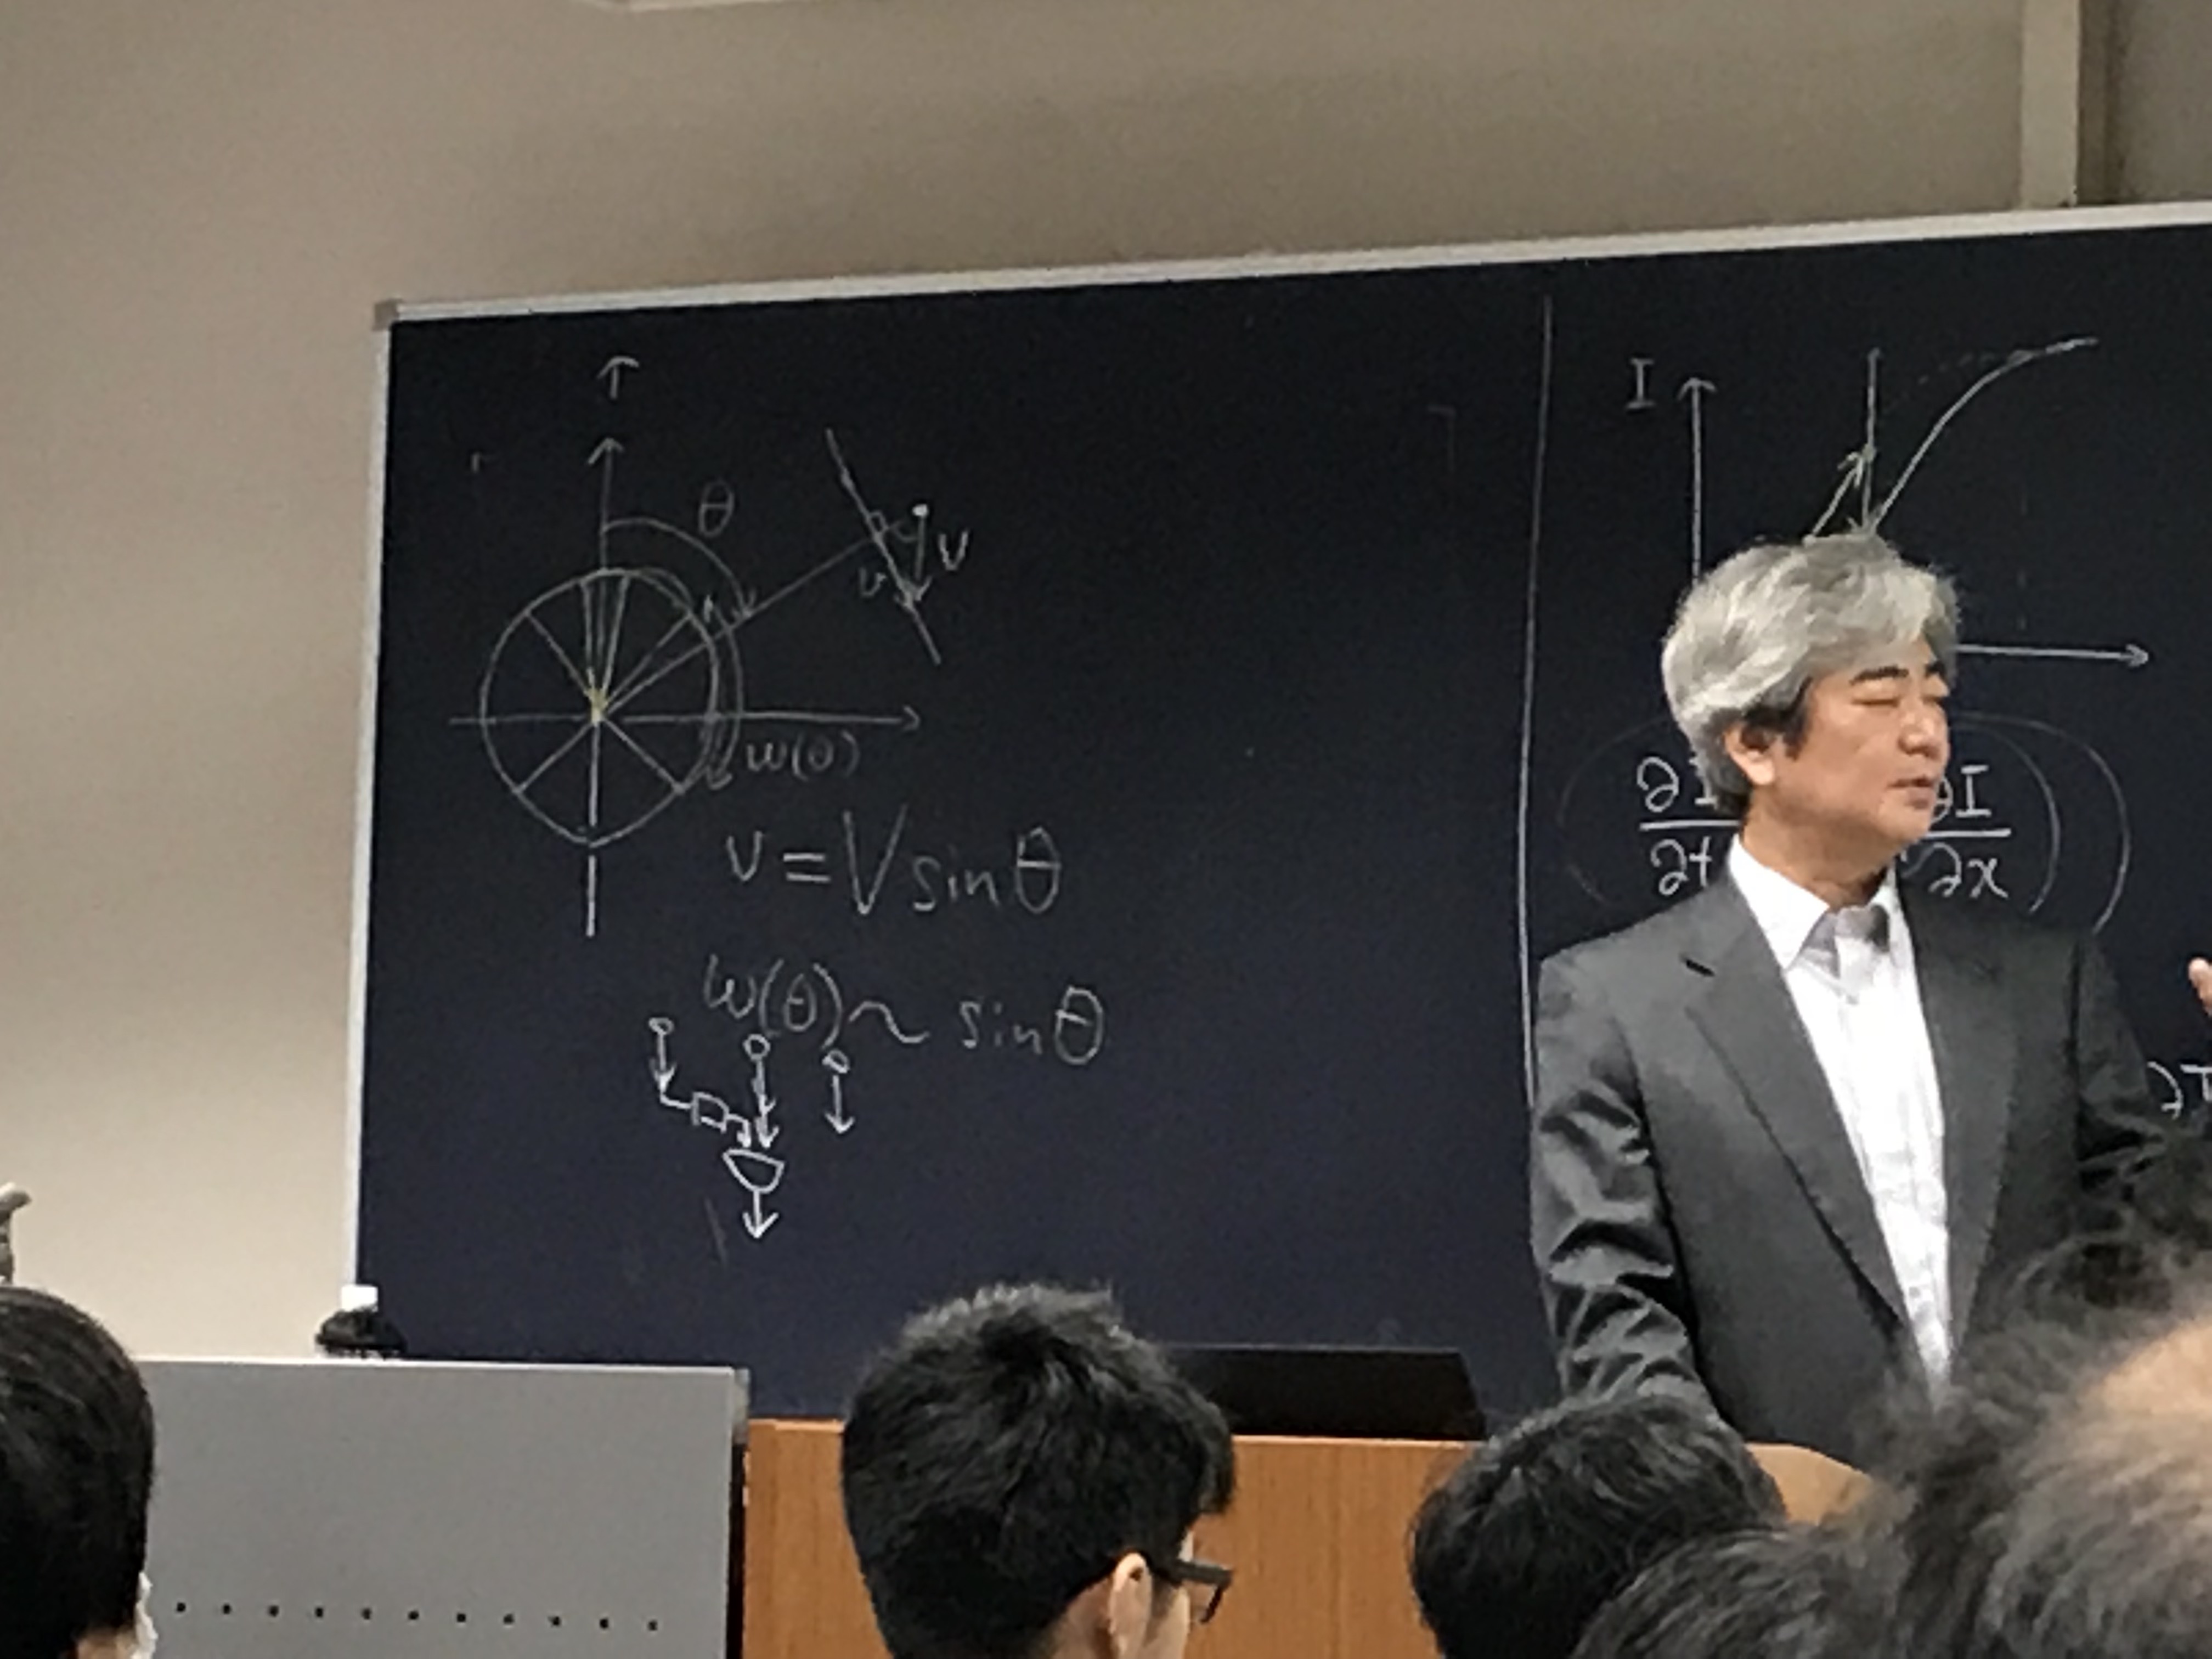 θ
v
V
w(θ)
v = V sin θ
w(θ) ~ sin θ
I
∂I
∂t
∂I
∂x